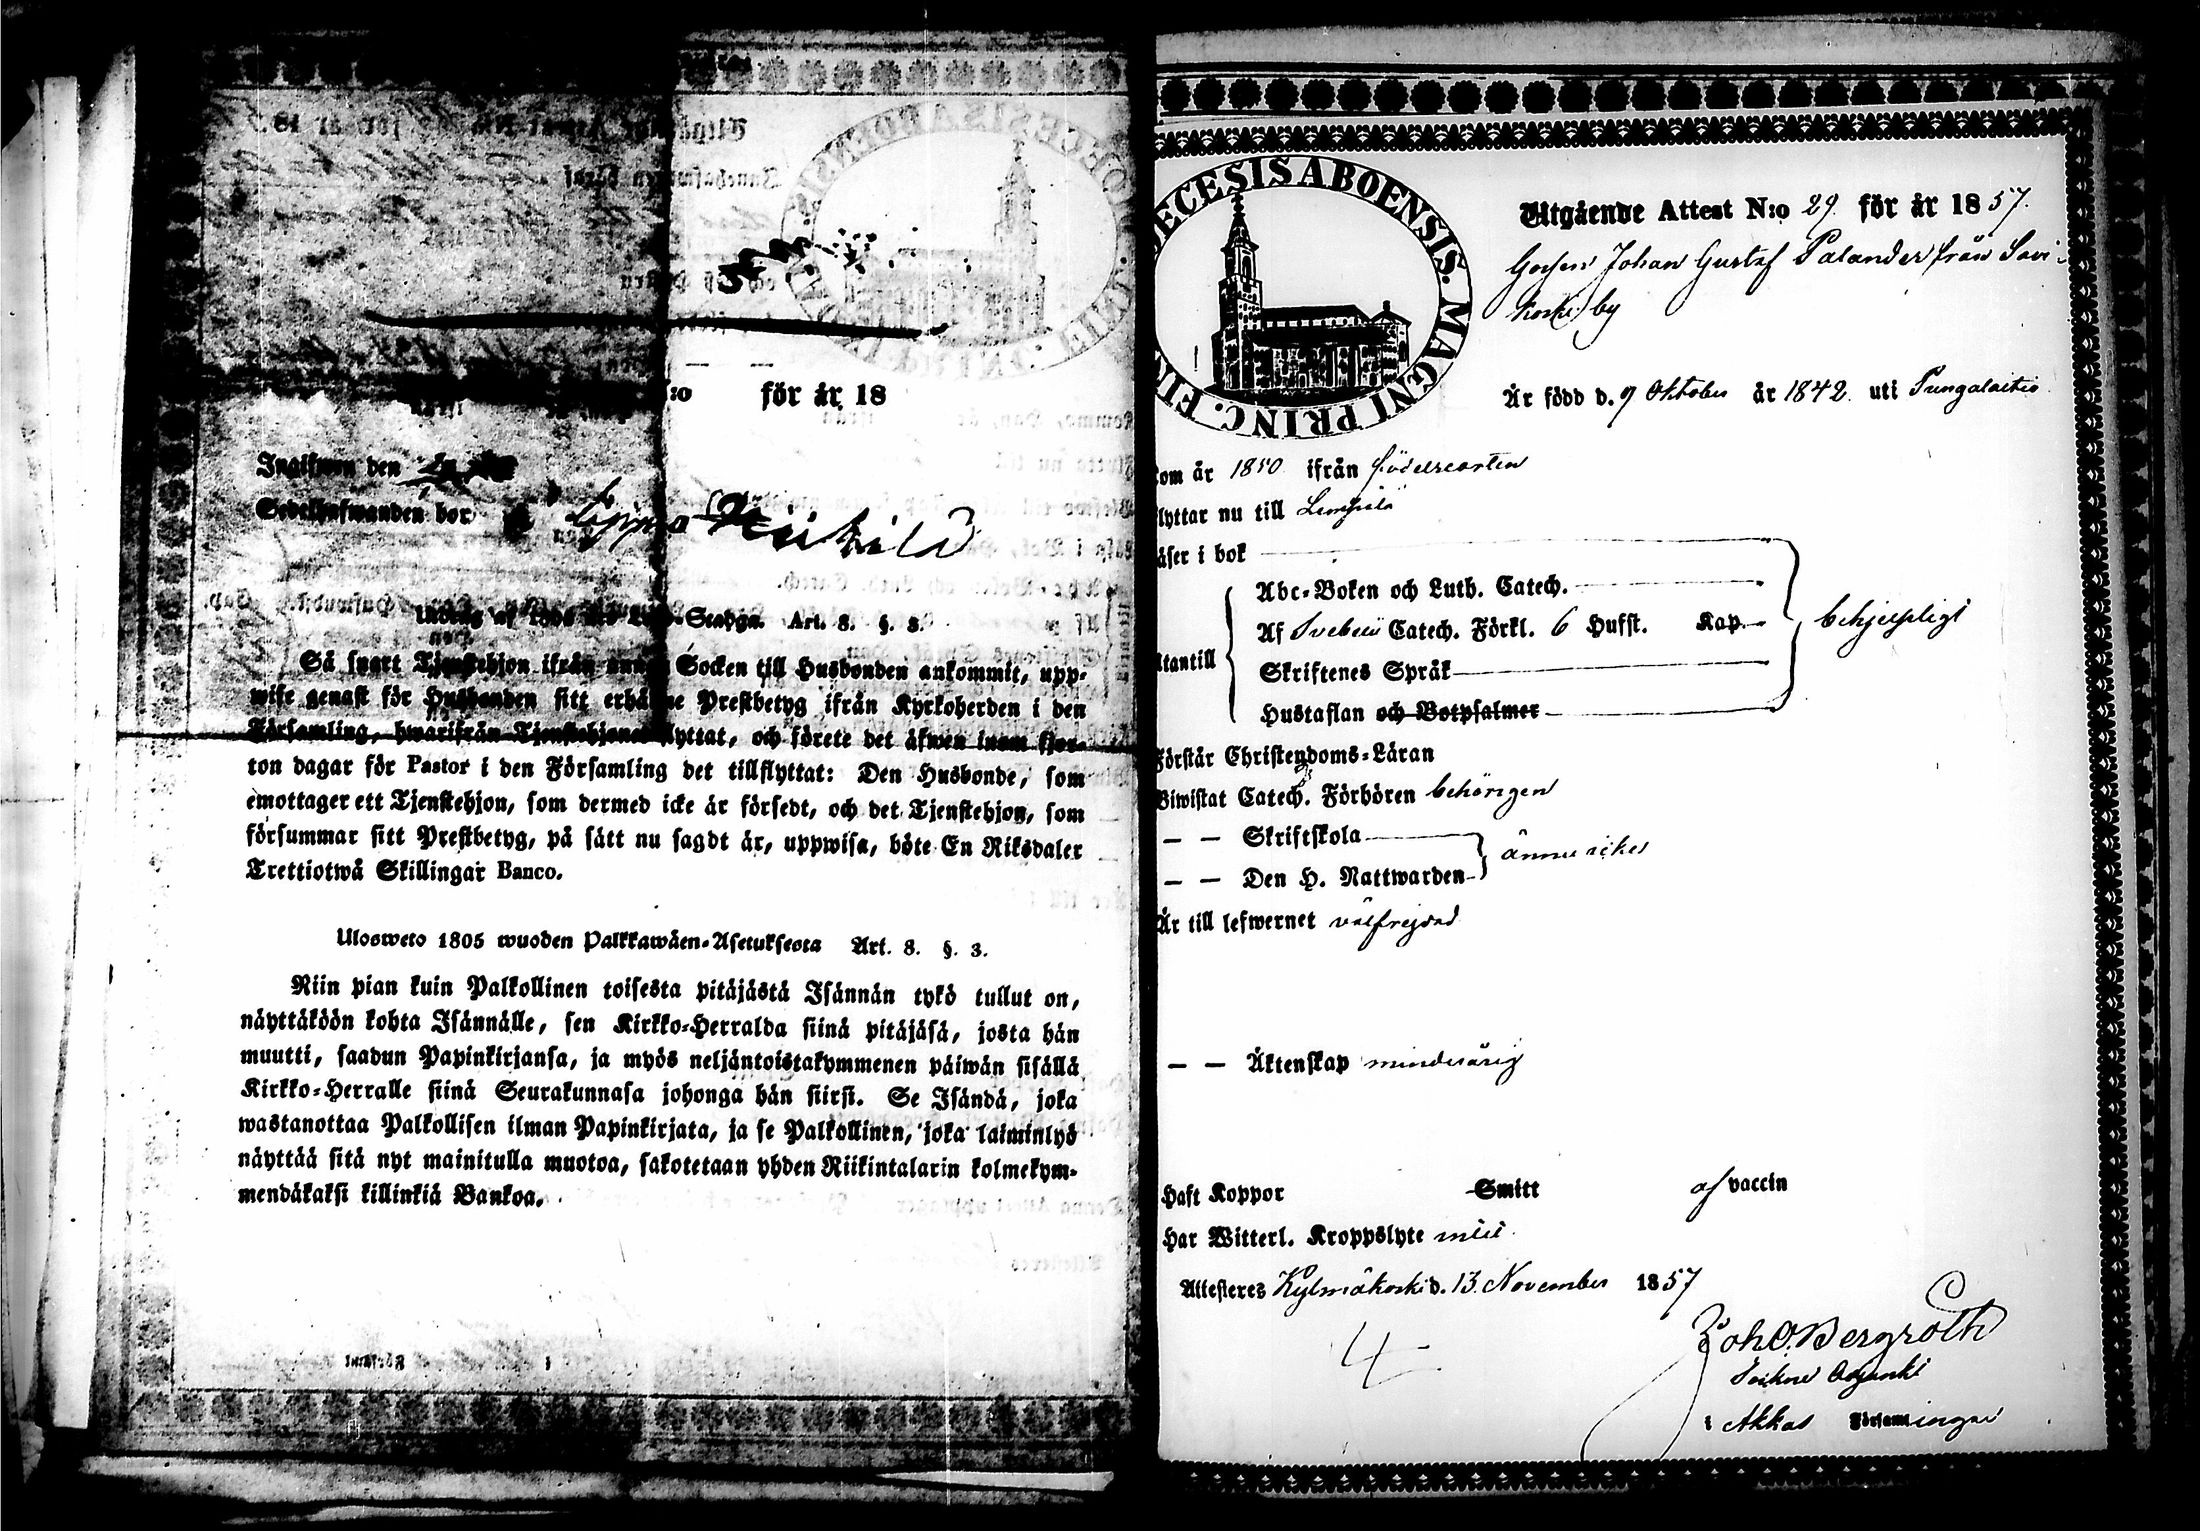 :o för år 18
Ingifwen den
Sedelhafwanden bor
Utdrag af 1805 Lego-Stadgn. Art. 8. §. 3.
Så snart Tjenstehjon ifrån annan Socken till Husbonden ankommit, upp-
wise genast för Husbonden sitt erhållne Prestbetyg ifrån Kyrkoherden i den
Församling, hwarifrån Tjenstehjonet flyttat, och förete det äfwen inom fjor-
ton dagar för Pastor i den Församling det tillflyttat: Den Husbonde, som
emottager ett Tjenstehjon, som dermed icke är försedt, och det Tjenstehjon, som
försummar sitt Prestbetyg, på sätt nu sagdt är, uppwisa, böte En Riksdaler
Trettiotwå Skillingar Banco.
Ulosweto 1805 wuoden Palkkawäen-Asetuksesta Art. 8. §. 3.
Niin pian kuin Palkollinen toisesta pitäjästä Isännän tykö tullut on,
näyttäköön kohta Isännälle, sen Kirkko-Herralda siinä pitäjäsä, josta hän
muutti, saadun Papinkirjansa, ja myös neljäntoistakymmenen päiwän sisällä
Kirkko-Herralle siinä Seurakunnasa johonga hän siirsi. Se Isändä, joka
wastanottaa Palkollisen ilman Papinkirjata, ja se Palkollinen, joka laiminlyö
näyttää sitä nyt mainitulla muotoa, sakotetaan yhden Riikintalarin kolmekym-
mendäkaksi killinkiä Bankoa.
DIECESIS ABOENSIS. MAGNI PRINC. FIN
Utgående Attest N:o 29. för år 1857.
Gossen Johan Gustaf Palander från Savi-
koski by
Är född d. 9 Oktober år 1842 uti Pungalaitio
kom år 1850 ifrån födelseorten
flyttar nu till Lempälä
läser i bok
Abc-Boken och Luth. Catech.
Af Svebelii Catech. Förkl. 6 Hufst. Kap.
utantill
Skriftenes Språk
Hustaflan och Botpsalmer
behjelpligt
Förstår Christendoms-Läran
Biwistat Catech. Förhören behörigen
— — Skriftskola
— — Den H. Nattwarden
ännu icke
Är till lefwernet välfrejdad
— — Äktenskap minderårig
Haft Koppor Smitt af vaccin
Har Witterl. Kroppslyte intet
Attesteres Kylmäkoski d. 13. November 1857
4
Joh O. Bergroth
Sockne Adjunkt
i Akkas Församlingar